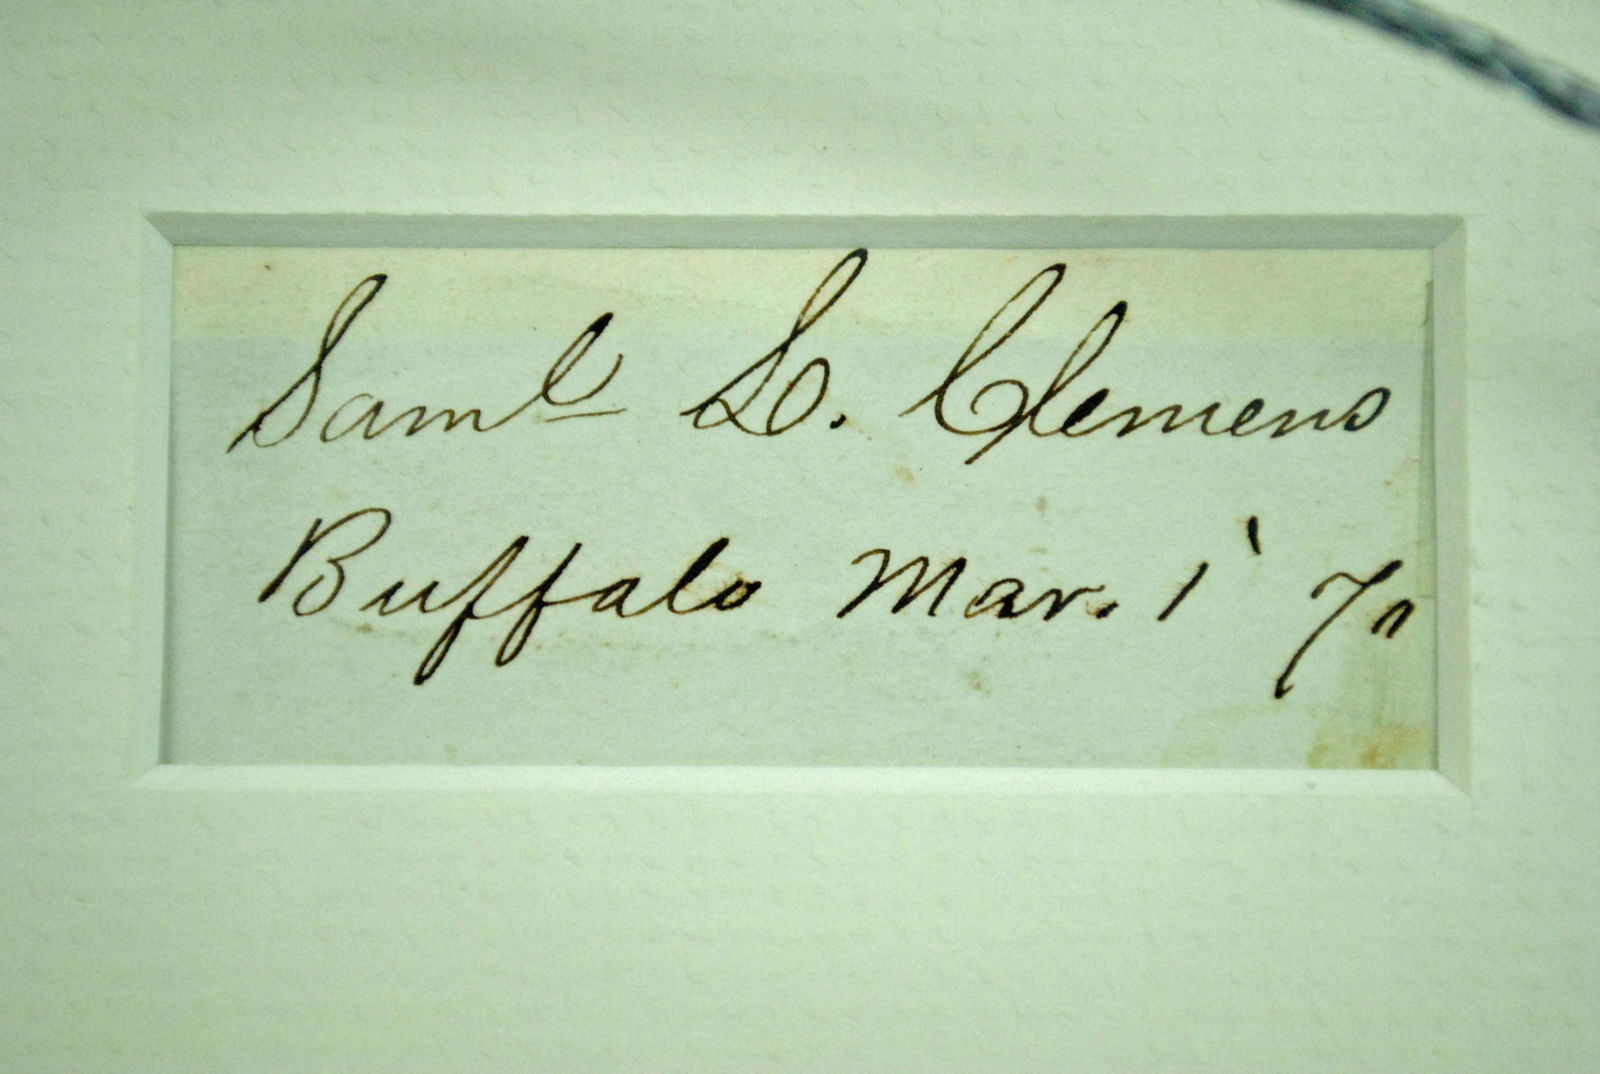 Saml L. Clemens
Buffalo Mar. 1 '70